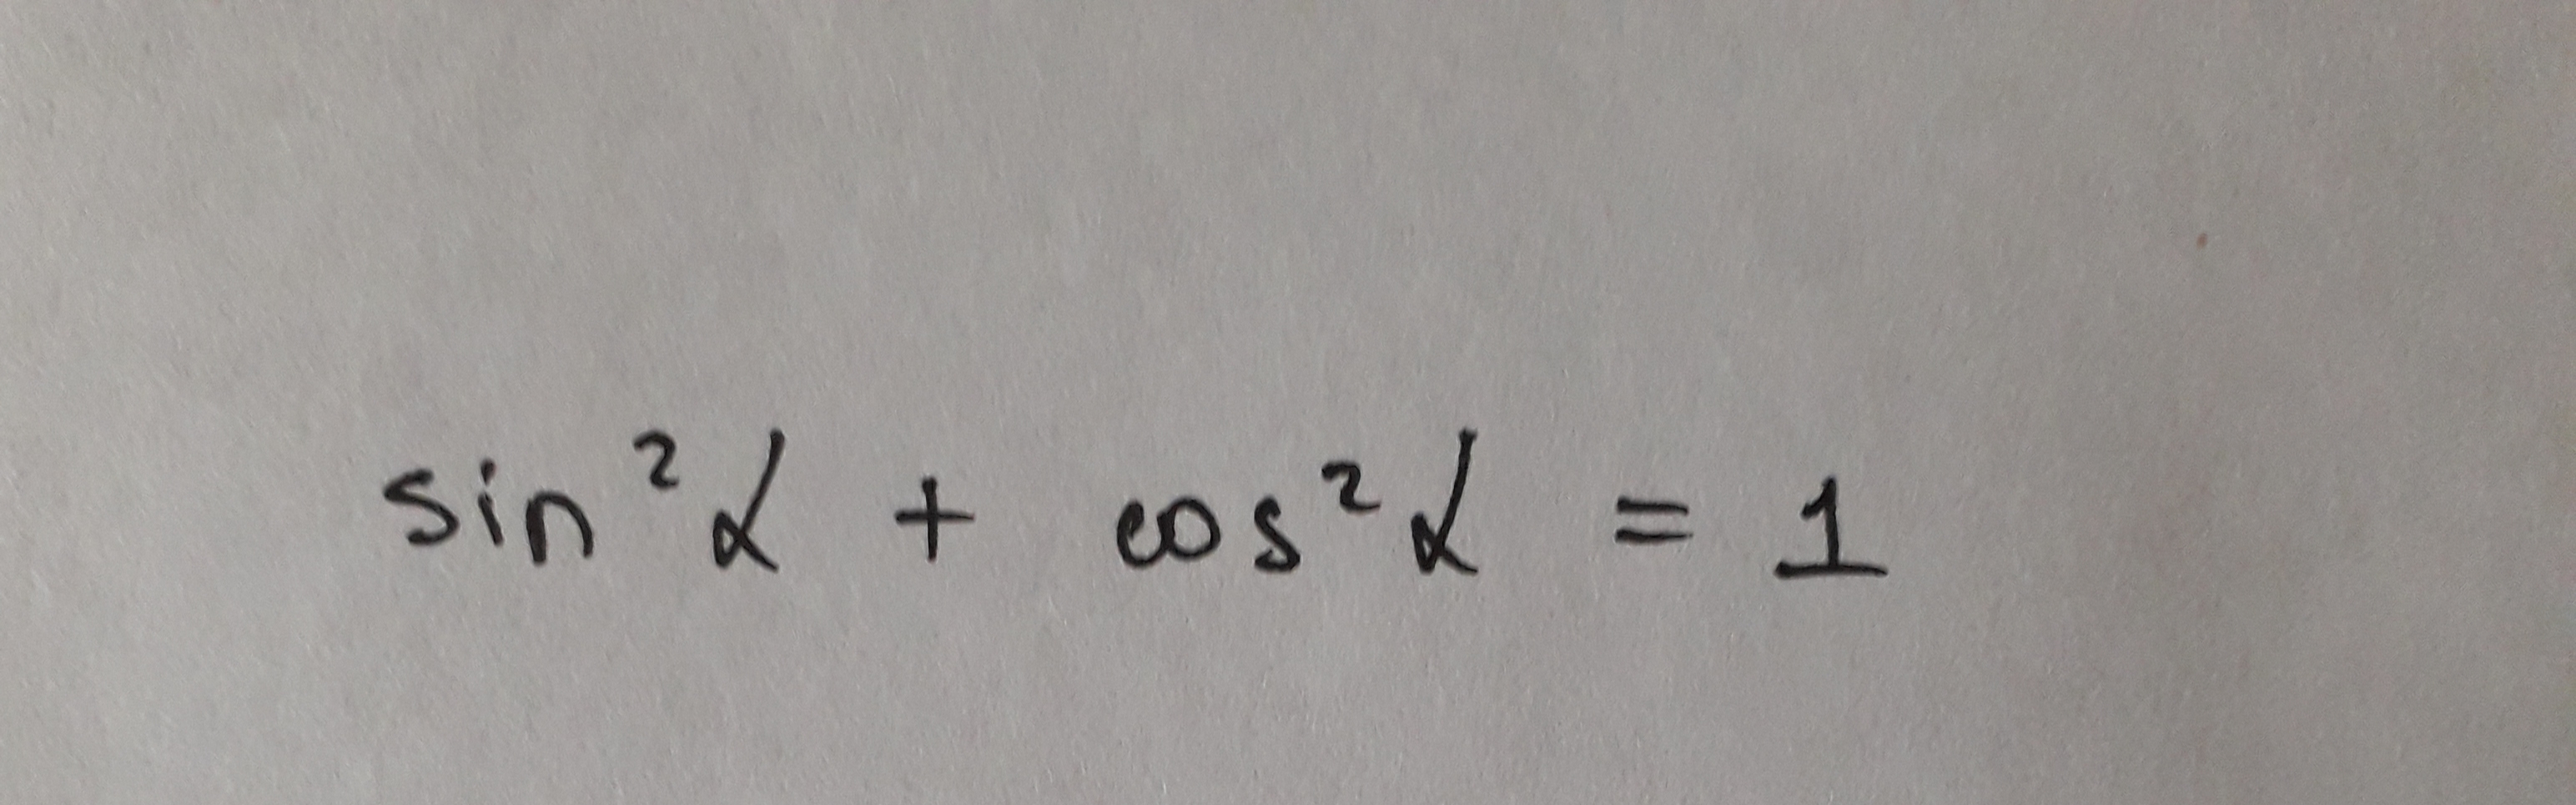 sin²α + cos²α = 1